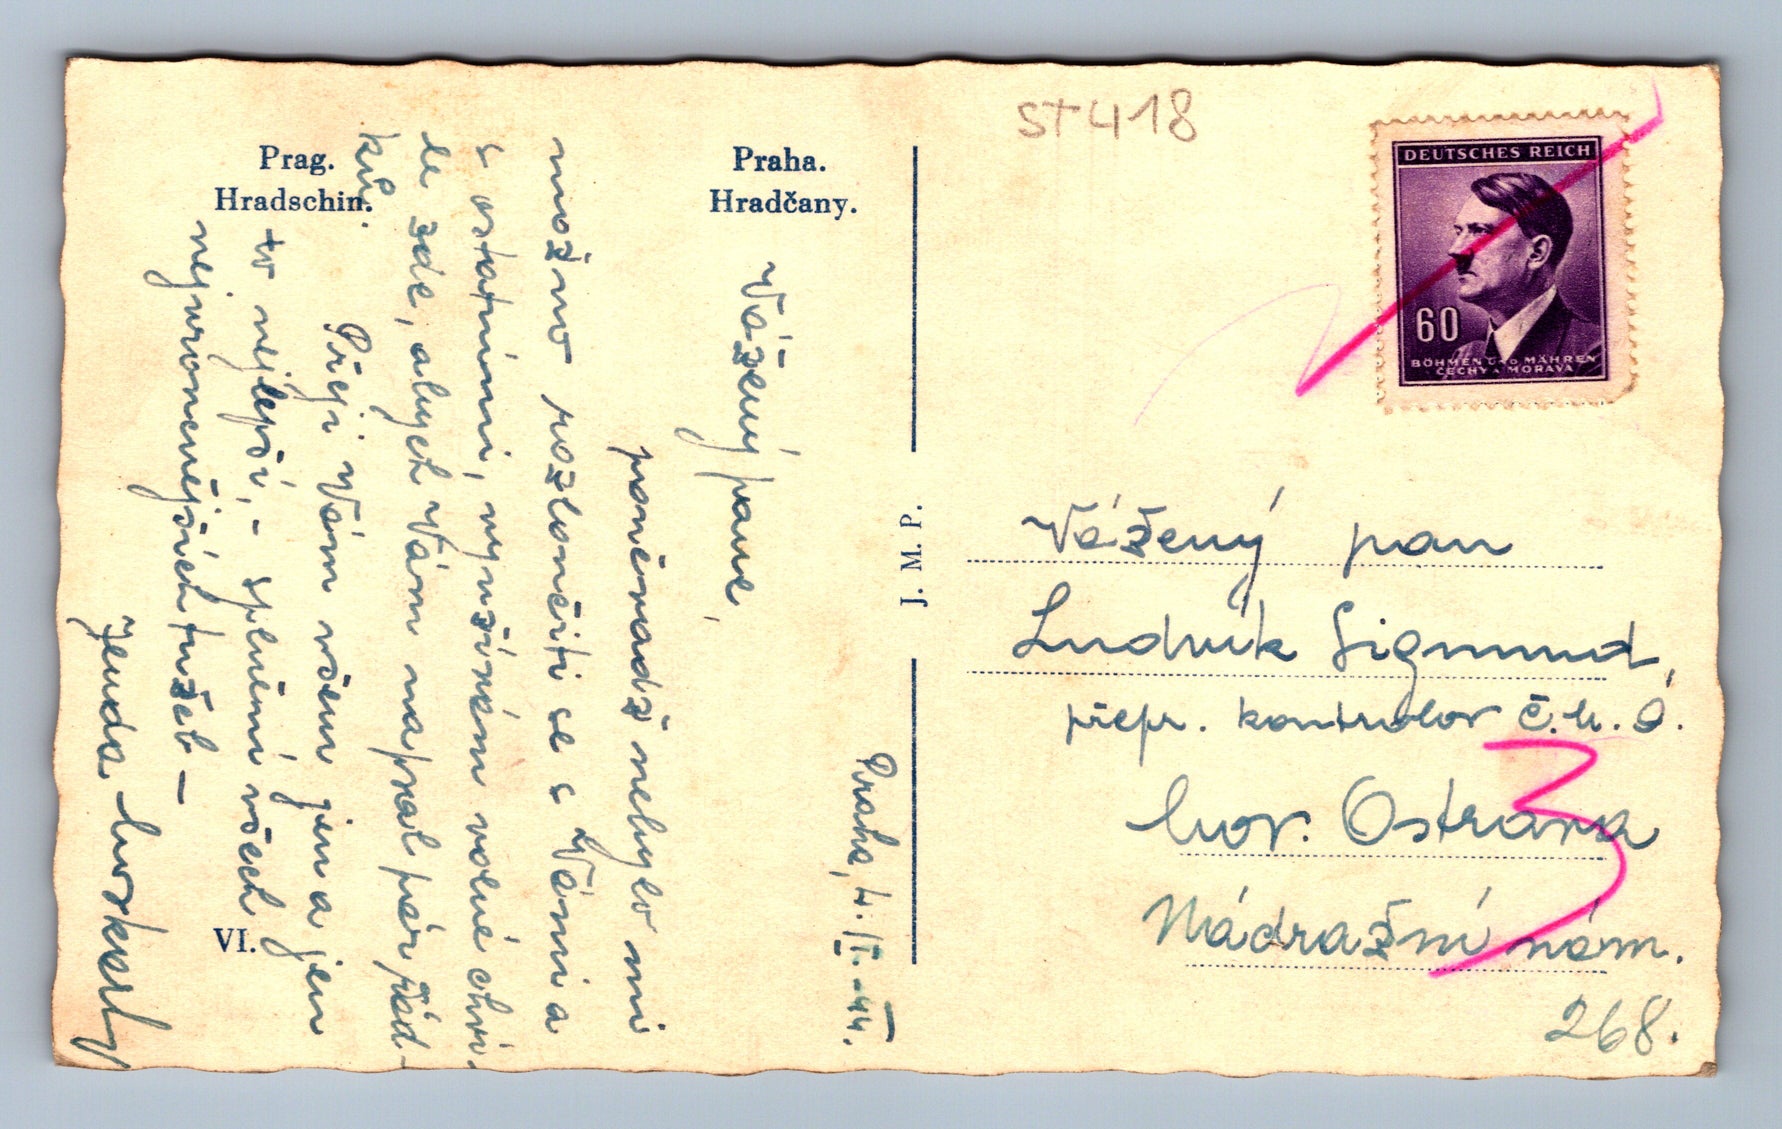 Prag.
Hradschin.
Praha.
Hradčany.
VI.
J. M. P.
st 418
DEUTSCHES REICH
60
BÖHMEN UND MÄHREN
ČECHY A MORAVA
Praha, 4./I.-44.
Vážený pane,
poněvadž nebylo mi
možno rozloučiti se s Vámi a
s ostatními, využívám volné chví-
le zde, abych Vám napsal pár řád-
ků.
Přeji Vám všem jen a jen
to nejlepší, - splnění všech
nejvroucnějších tužeb -
Jenda
Vážený pan
Ludvík Sigmund,
přepr. kontrolor č.
Mor. Ostrava
Nádražní nám.
268.
3